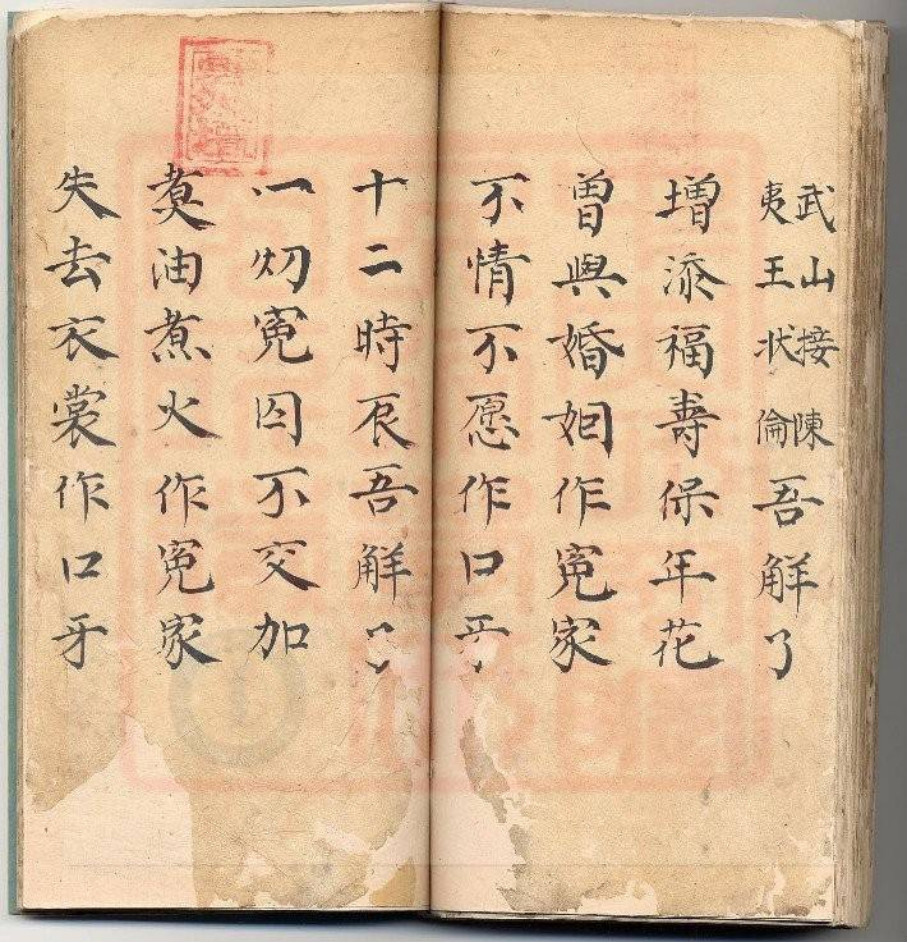 武山接陳
夷王狀倫
吾解了
增添福壽保年花
曽與婚姻作冤家
不情不愿作口牙
十二時辰吾解了
一切冤囚不交加
煑油煮火作冤家
失去衣裳作口牙